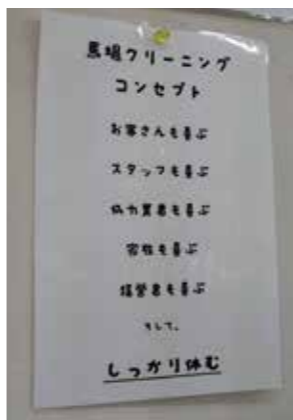 馬場クリーニング
コンセプト
お客さんも喜ぶ
スタッフも喜ぶ
協力業者も喜ぶ
家族も喜ぶ
経営者も喜ぶ
そして、
しっかり休む